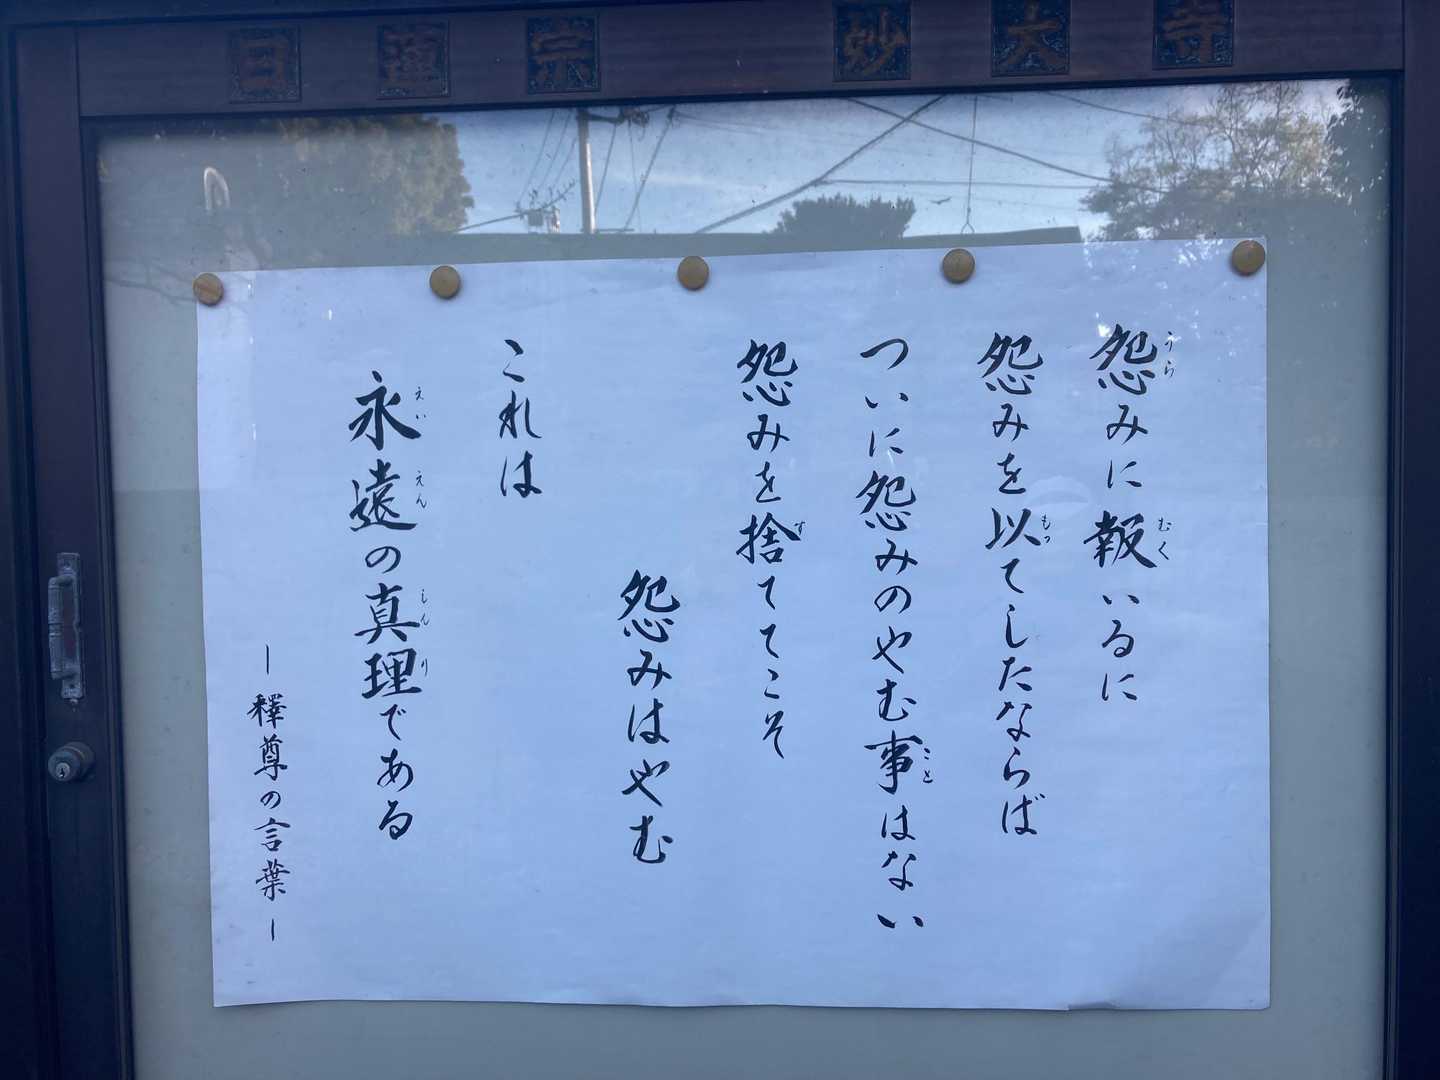 日蓮宗 妙大寺
怨みに報いるに
怨みを以てしたならば
ついに怨みのやむ事はない
怨みを捨ててこそ
怨みはやむ
これは
永遠の真理である
ー釋尊の言葉ー